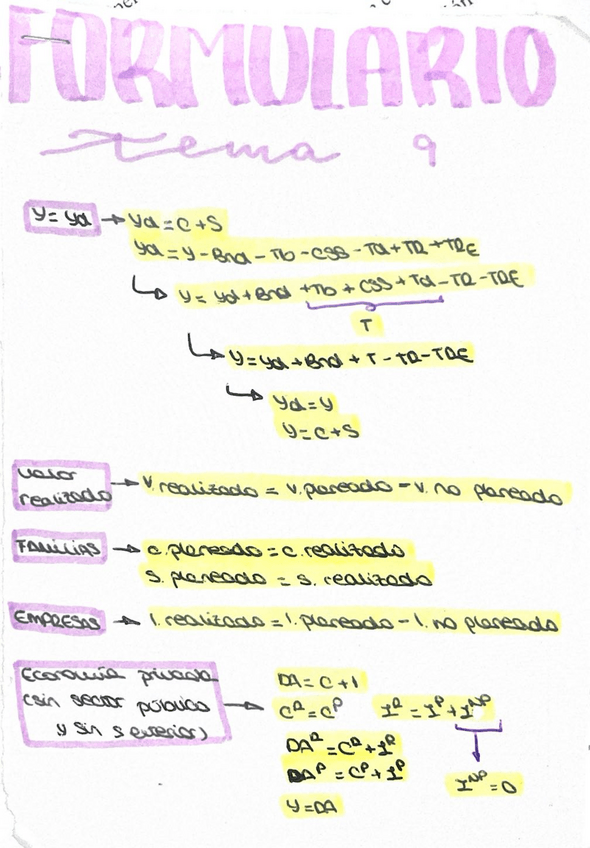 FORMULARIO
tema 9
Y = Yd → Yd = C + S
Yd = Y - Bnd - Tb - CSS - Td + TR + TRE
Y = Yd + Bnd + Tb + CSS + Td - TR - TRE
T
Y = Yd + Bnd + T - TR - TRE
Yd = Y
Y = C + S
Valor realizado → V. realizado = V. planeado - V. no planeado
FAMILIAS → C. planeado = C. realizado
S. planeado = S. realizado
EMPRESAS → I. realizado = I. planeado - I. no planeado
Economía privada (sin sector público y sin s exterior) →
DA = C + I
Cᴿ = Cᴾ Iᴿ = Iᴾ + Iᴺᴾ
DAᴿ = Cᴿ + Iᴿ
DAᴾ = Cᴾ + Iᴾ
Iᴺᴾ = 0
Y = DA